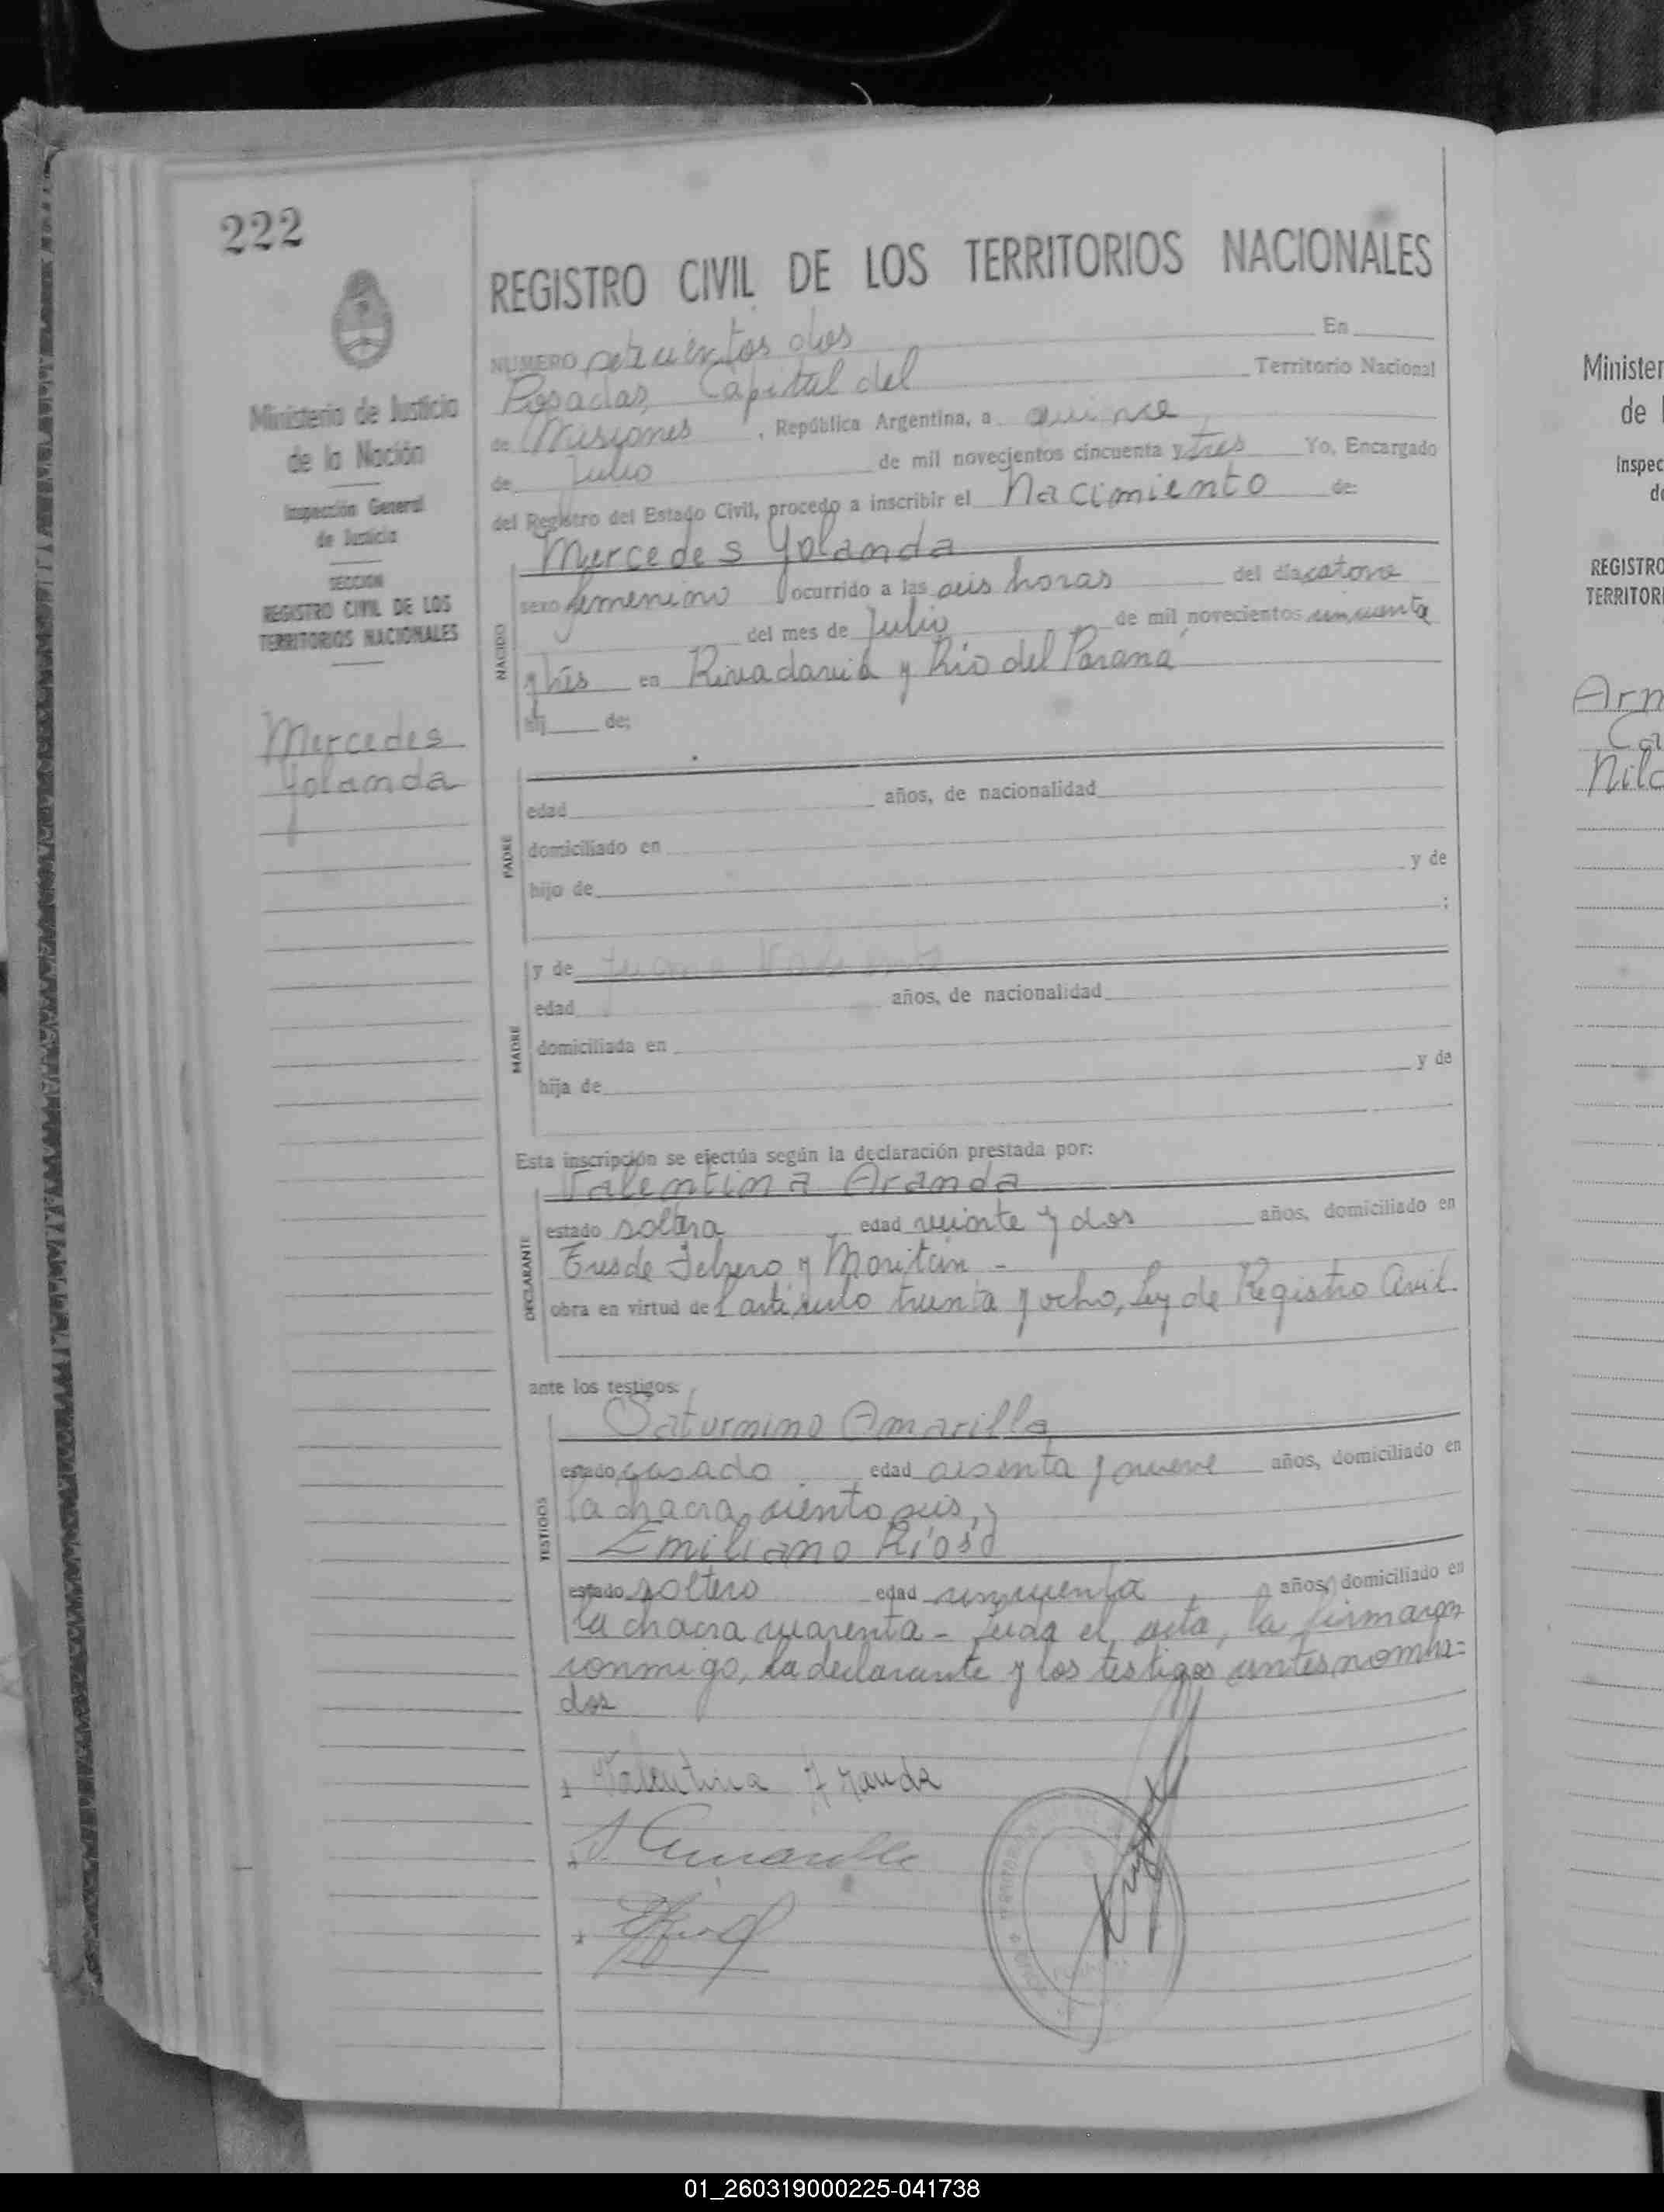 222
REGISTRO CIVIL DE LOS TERRITORIOS NACIONALES
NUMERO setecientos dos En
Posadas, Capital del Territorio Nacional
de Misiones, República Argentina, a quince
de Julio de mil novecientos cincuenta y tres Yo, Encargado
del Registro del Estado Civil, procedo a inscribir el Nacimiento de:
Mercedes Yolanda
sexo femenino ocurrido a las seis horas del día catorce
del mes de Julio de mil novecientos cincuenta
y tres en Rivadavia y Río del Paraná
hij de:
NACIDO
Ministerio de Justicia
de la Nación
Inspección General
de Justicia
SECCION
REGISTRO CIVIL DE LOS
TERRITORIOS NACIONALES
Mercedes
Yolanda
PADRE
edad años, de nacionalidad
domiciliado en
hijo de y de
:
MADRE
y de
edad años, de nacionalidad
domiciliada en
hija de y de
Esta inscripción se efectúa según la declaración prestada por:
DECLARANTE
Valentina Aranda
estado soltera edad veinte y dos años, domiciliado en
Tres de Febrero y Moritan -
obra en virtud del artículo treinta y ocho, Ley de Registro Civil.
ante los testigos:
TESTIGOS
Saturnino Amarilla
estado casado edad sesenta y nueve años, domiciliado en
la chacra ciento seis, y
Emiliano Ríos
estado soltero edad cincuenta años, domiciliado en
la chacra cuarenta - Leída el acta, la firmaron
conmigo, la declarante y los testigos antes nombra=
dos
Valentina Aranda
S. Amarilla
Minister
de
Inspec
de
REGISTRO
TERRITOR
Arn
Ca
Nild
01_260319000225-041738